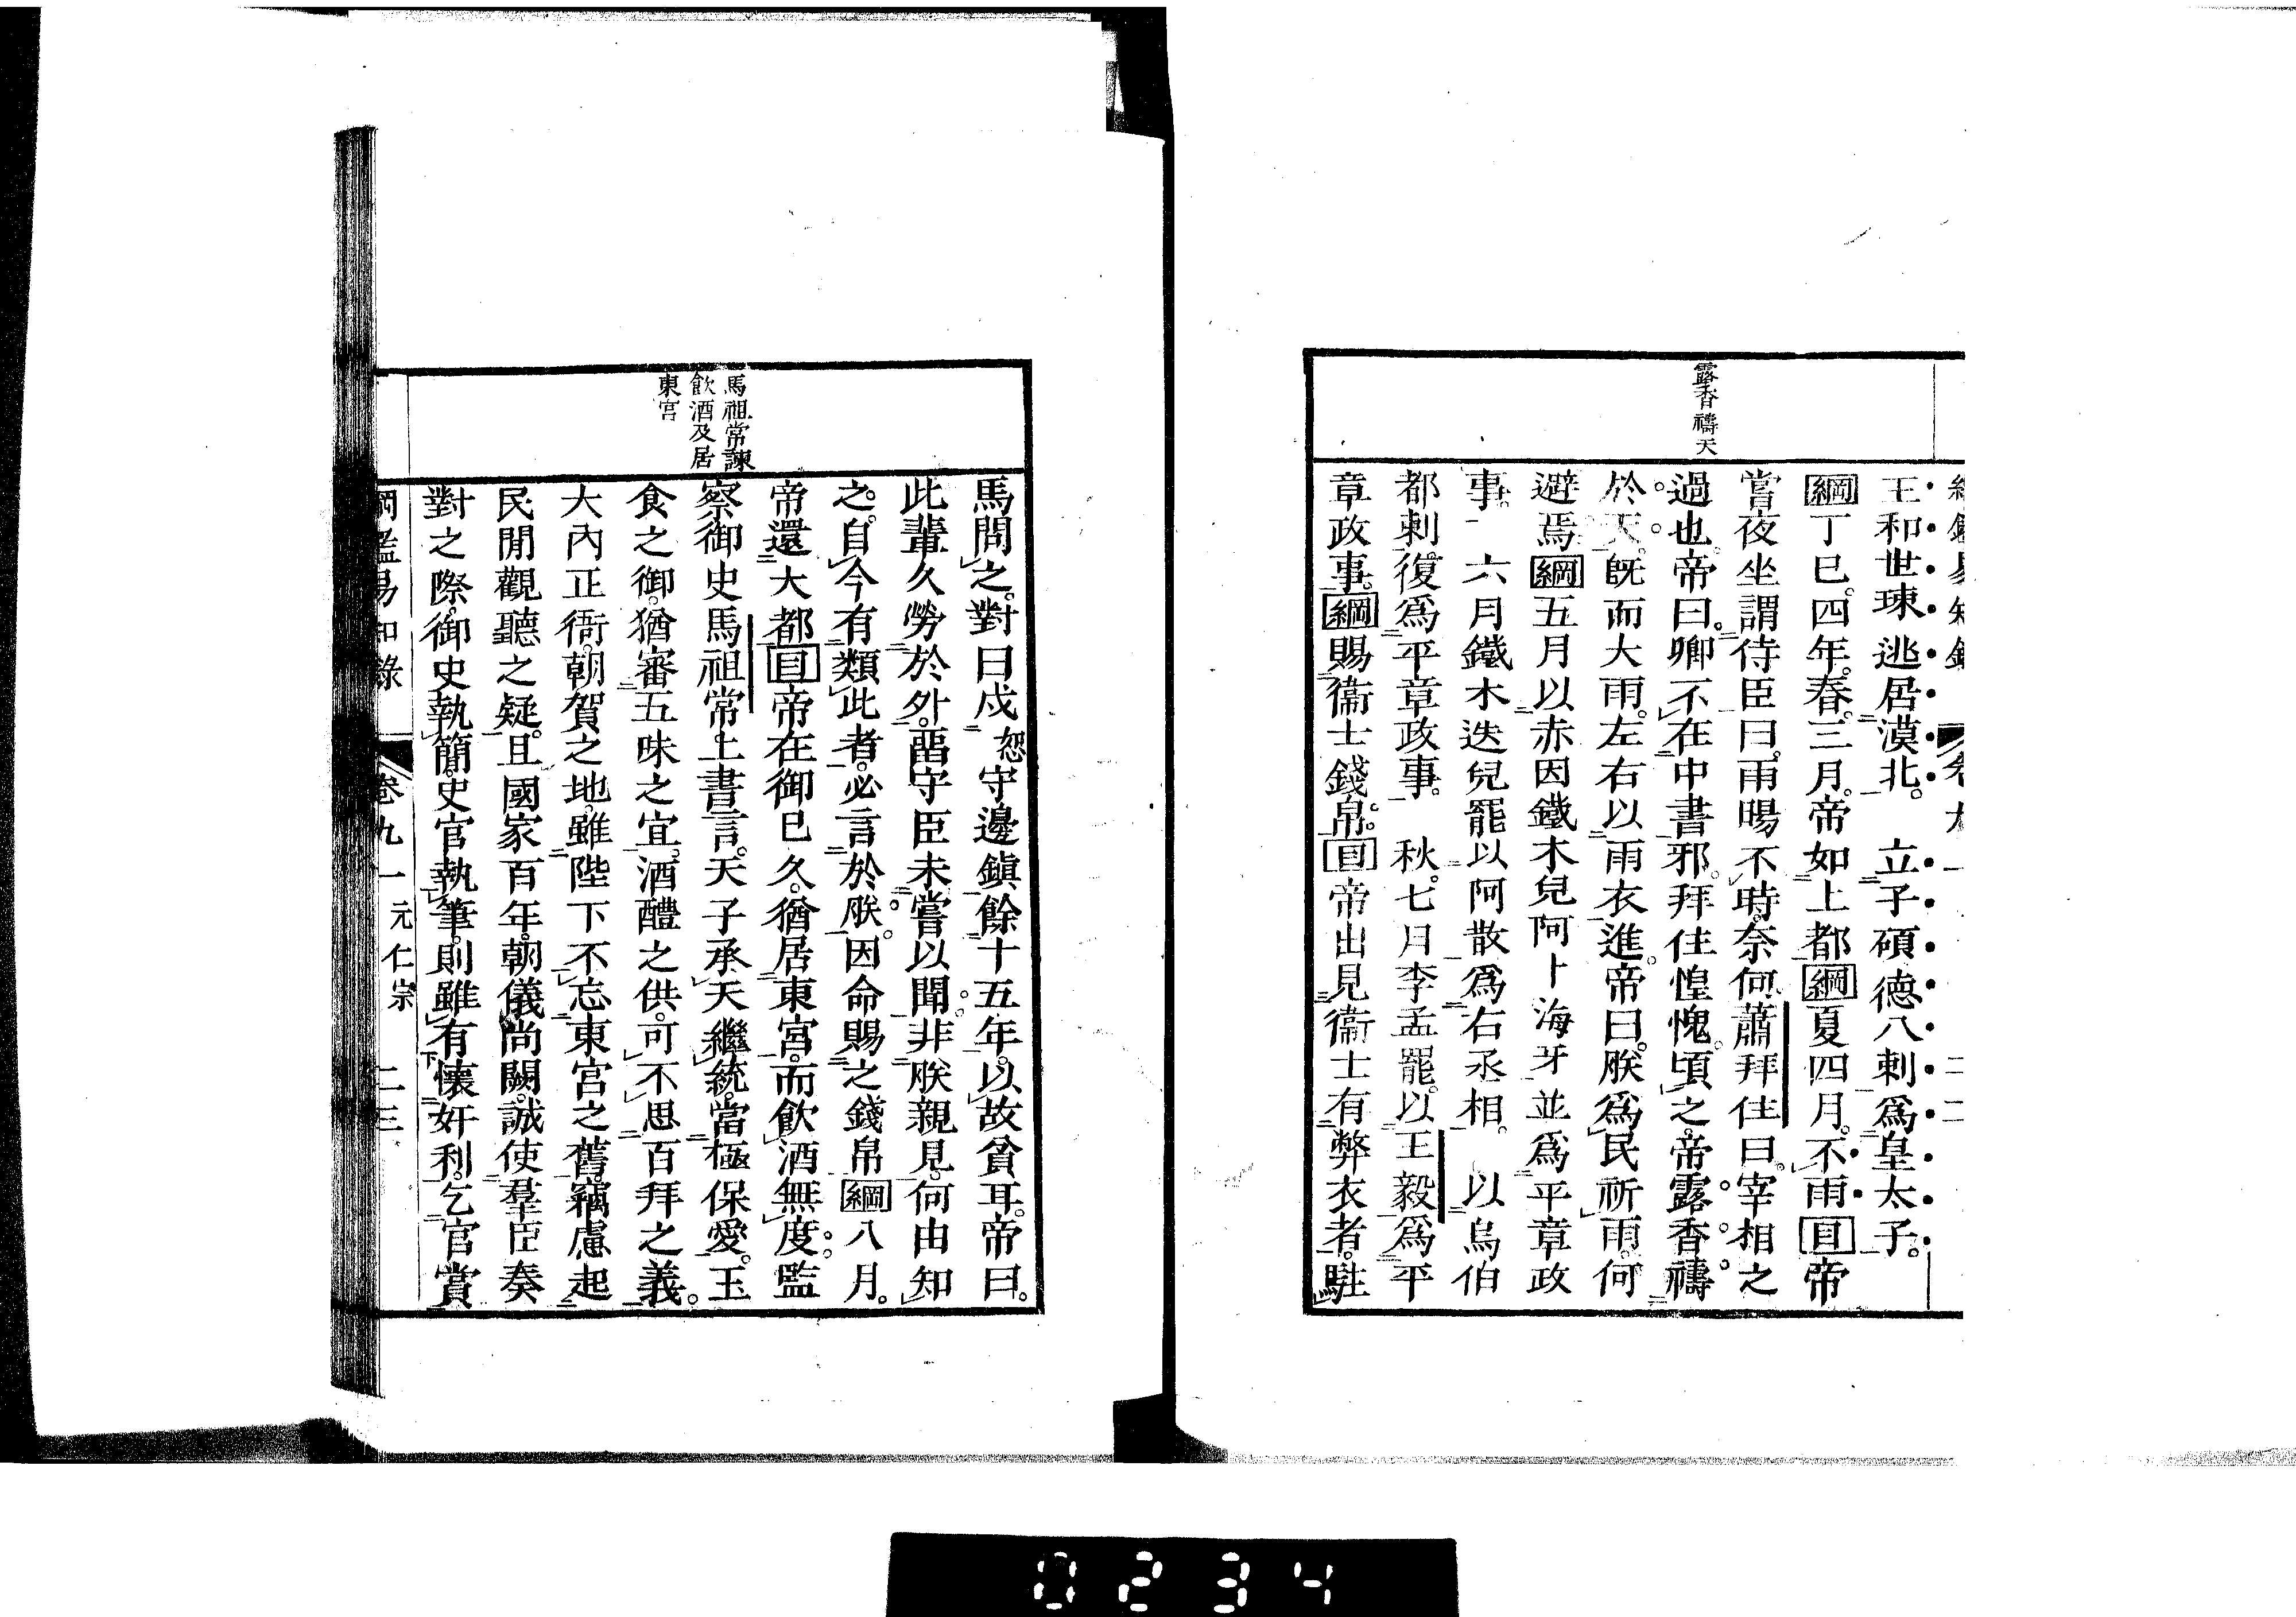 綱鑑易知錄 卷九一 二二
露香禱天
王和世㻋逃居漠北。 立子碩德八剌爲皇太子。
綱丁巳。四年。春。三月。帝如上都綱夏四月。不雨目帝
嘗夜坐謂侍臣曰。雨暘不時。奈何。蕭拜住曰。宰相之
過也。帝曰。卿不在中書邪。拜住惶愧。頃之。帝露香禱
於天。旣而大雨。左右以雨衣進。帝曰。朕爲民祈雨。何
避焉綱五月以赤因鐵木兒阿卜海牙並爲平章政
事。 六月鐵木迭兒罷以阿散爲右丞相。 以烏伯
都剌。復爲平章政事。 秋。七月李孟罷。以王毅爲平
章政事。綱賜衞士錢帛。目帝出見衞士有弊衣者。駐
馬祖常諫
飮酒及居
東宮
馬問之。對曰戍恕守邊鎭餘十五年。以故貧耳。帝曰。
此輩久勞於外。畱守臣未嘗以聞。非朕親見。何由知
之。自今有類此者。必言於朕。因命賜之錢帛綱八月。
帝還大都目帝在御巳久。猶居東宮。而飮酒無度。監
察御史馬祖常。上書言。天子承天繼統。當極保愛。玉
食之御。猶審五味之宜。酒醴之供。可不思百拜之義。
大內正衙。朝賀之地。雖陛下不忘東宮之舊。竊慮起
民閒觀聽之疑。且國家百年。朝儀尚闕。誠使羣臣奏
對之際。御史執簡。史官執筆。則雖有懷奸利。乞官賞
綱鑑易知錄 卷九一 元仁宗 二三
0234